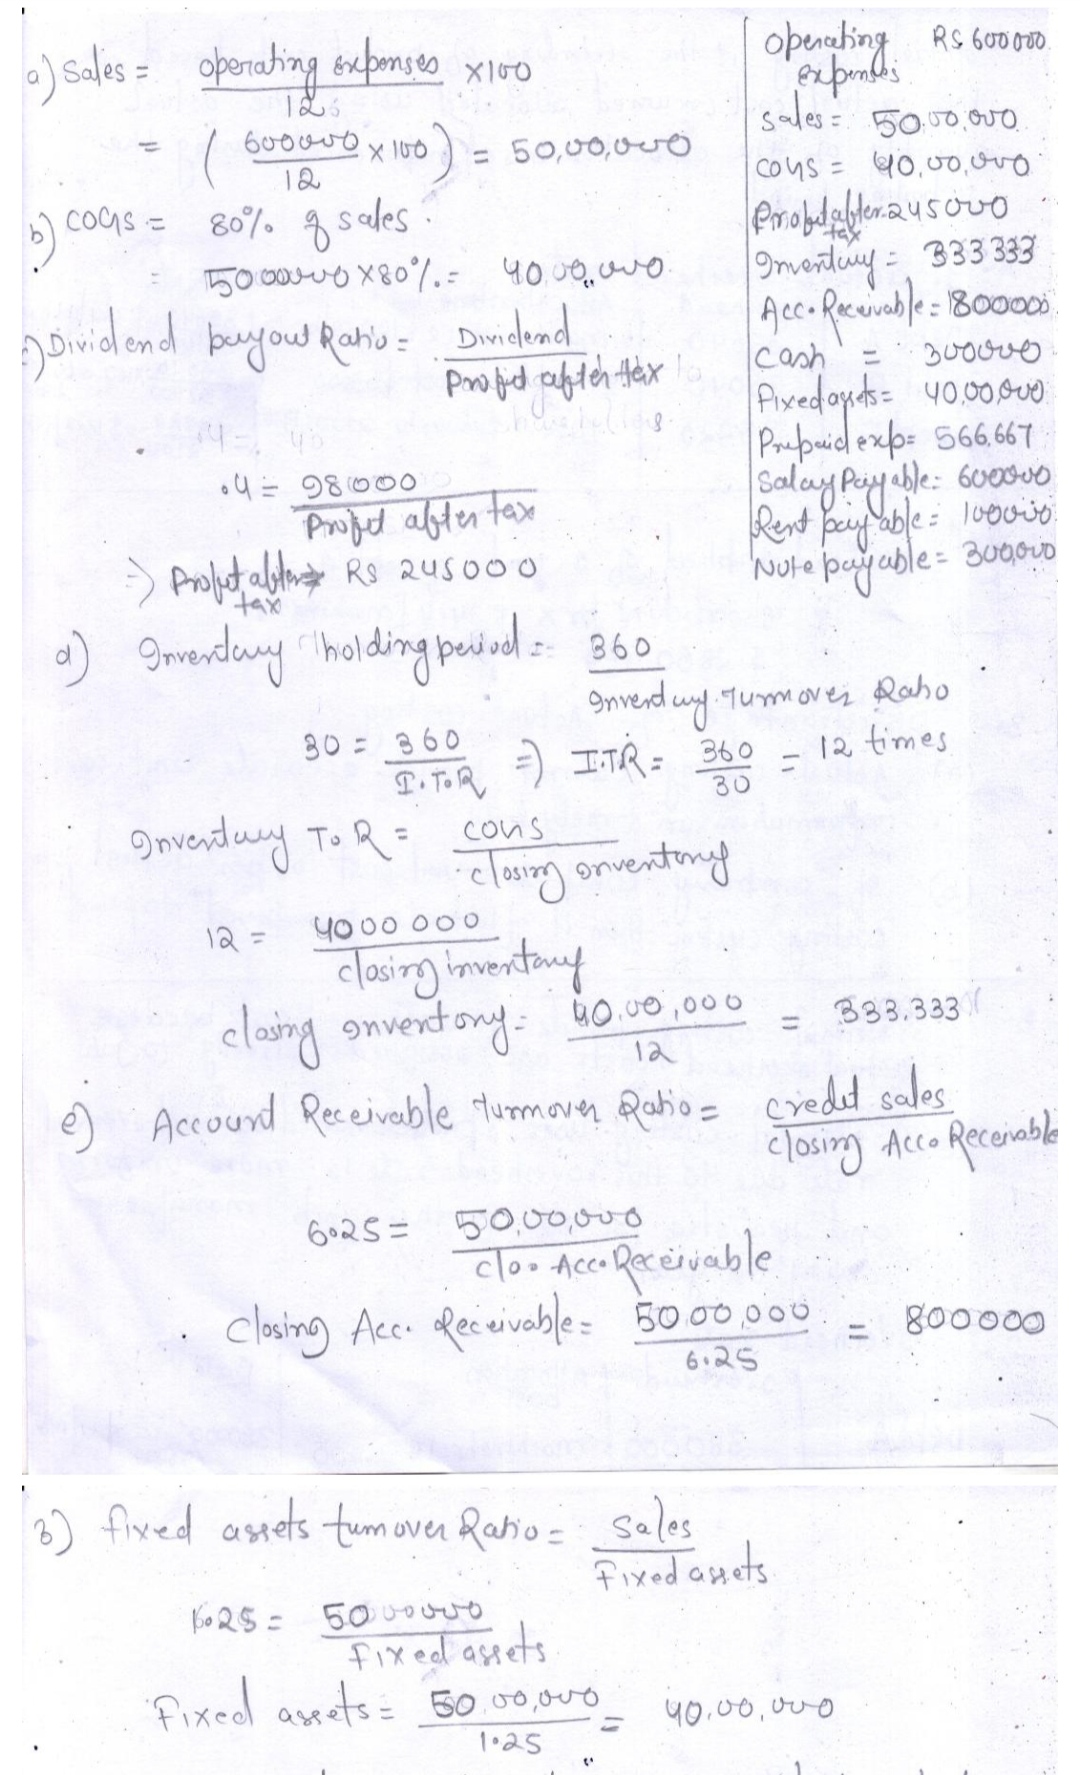 a) Sales = operating expenses ×100
12%
= ( 600000 ×100 ) = 50,00,000
12
b) COGS = 80% of sales.
= 5000000 ×80% = 40,00,000
c) Dividend payout Ratio = Dividend
Profit after tax
.4 = 40
.4 = 98000
Profit after tax
=> Profit after tax = RS 245000
d) Inventory holding period = 360
Inventory Turnover Ratio
30 = 360 => I.T.R = 360 = 12 times
I.T.O.R 30
Inventory T.o R = COGS
closing inventory
12 = 4000 000
closing inventory
closing inventory = 40,00,000 = 333,333
12
e) Account Receivable turnover Ratio = credit sales
closing Acc. Receivable
6.25 = 50,00,000
clo. Acc. Receivable
Closing Acc. Receivable = 50,00,000 = 800000
6.25
Operating expenses RS 600000
Sales = 50,00,000
COGS = 40,00,000
Profit after tax 245000
Inventory = 333333
Acc. Receivable = 800000
Cash = 300000
Fixed assets = 40,00,000
Prepaid exp = 566,667
Salay Payable = 600000
Rent payable = 100000
Note payable = 300,000
3) fixed assets turnover Ratio = Sales
Fixed assets
.25 = 5000000
Fixed assets
Fixed assets = 50,00,000 = 40,00,000
1.25